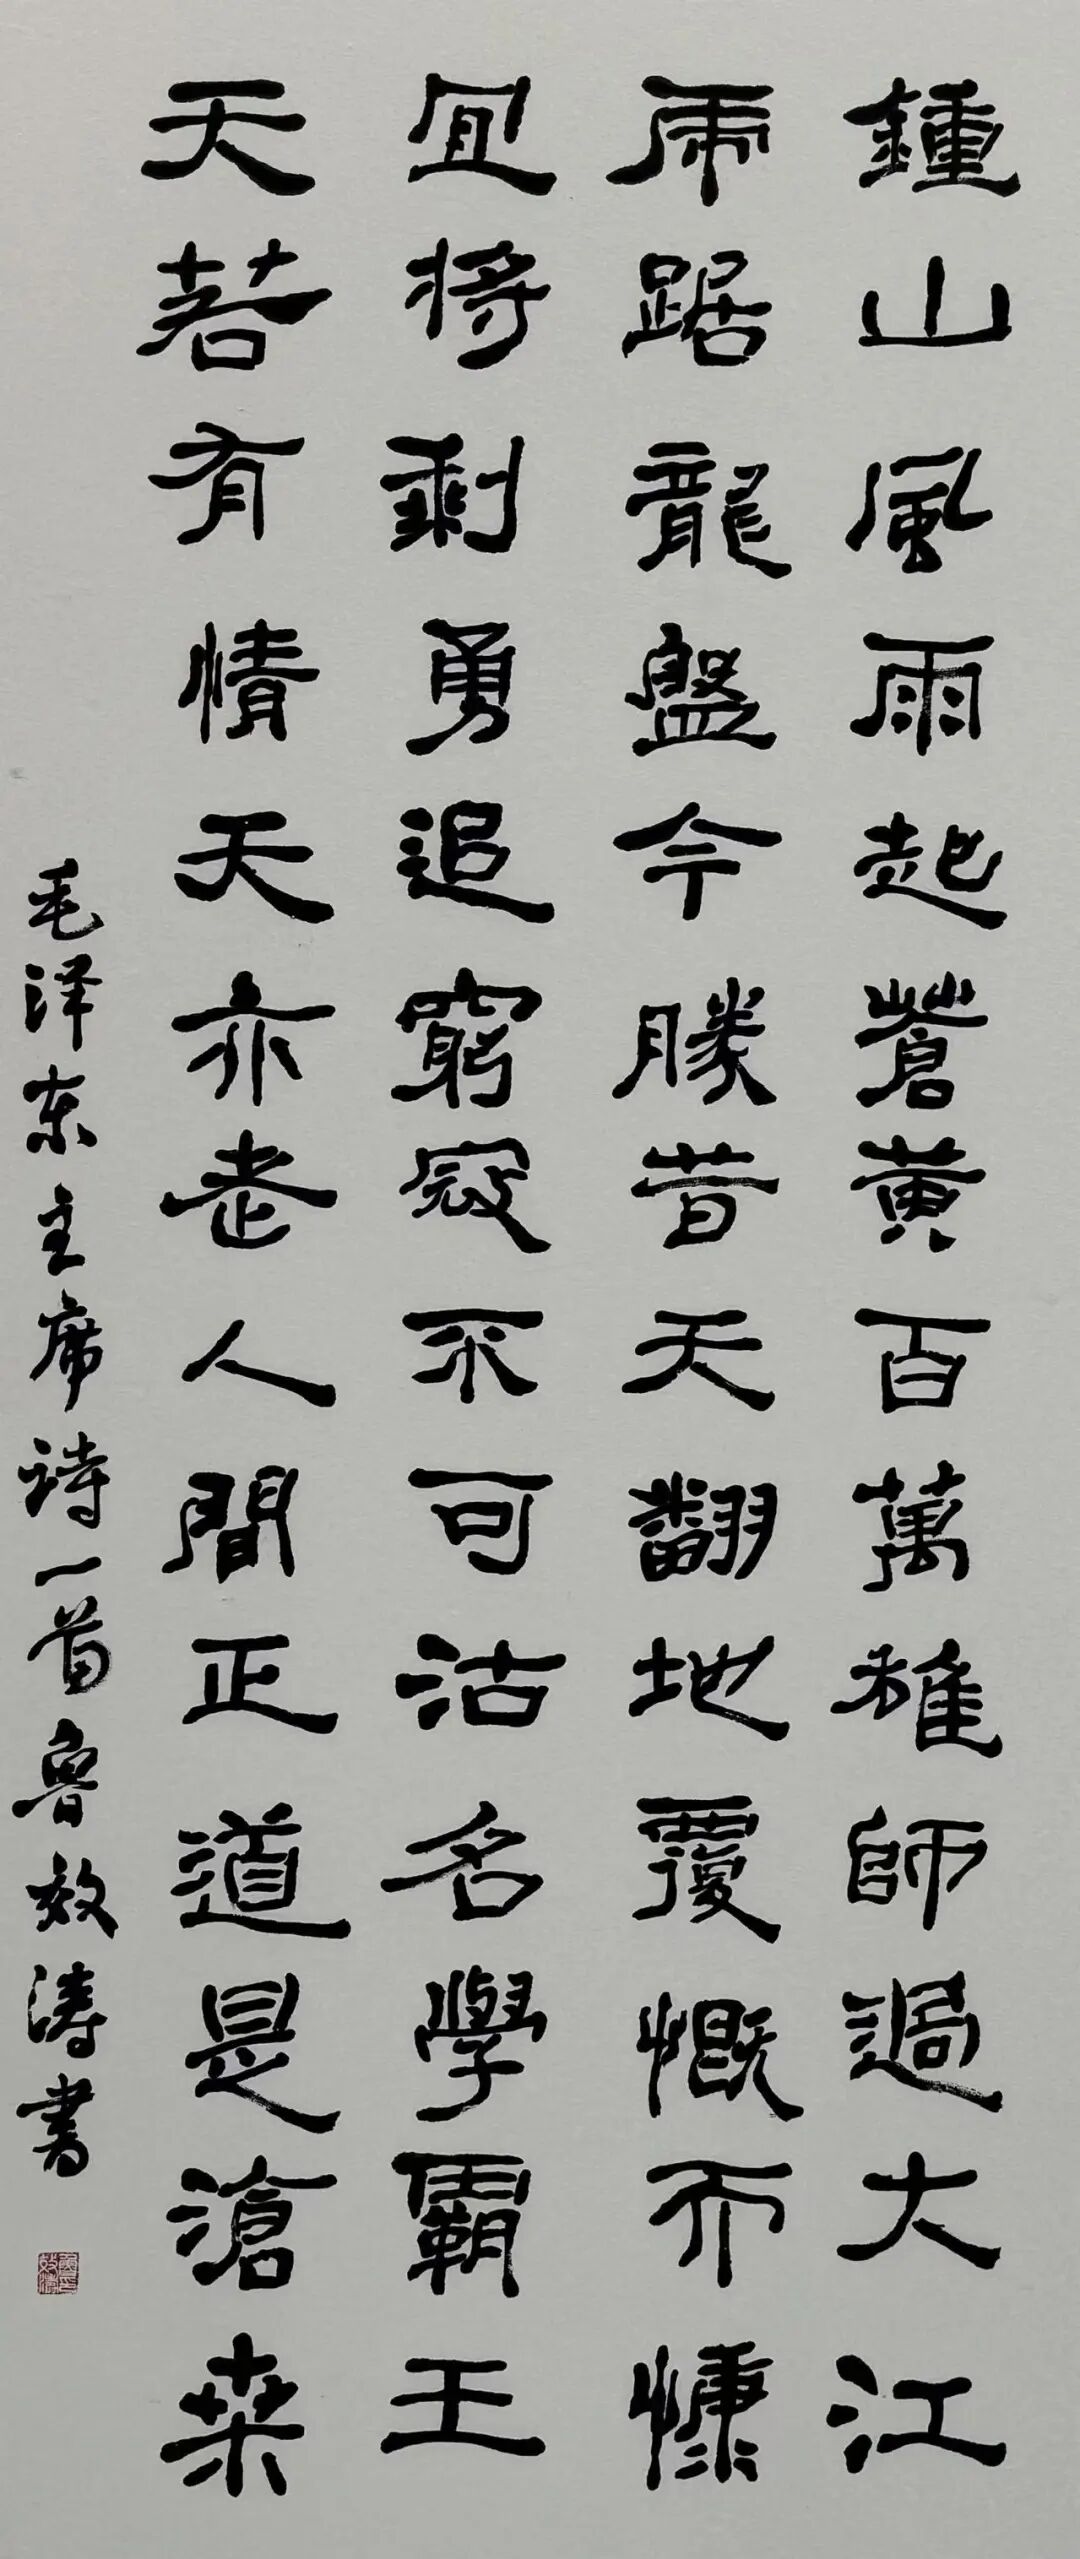 鍾山風雨起蒼黃百萬雄師過大江
虎踞龍盤今勝昔天翻地覆慨而慷
宜將剩勇追窮寇不可沽名學霸王
天若有情天亦老人間正道是滄桑
毛泽东主席诗一首魯效涛書